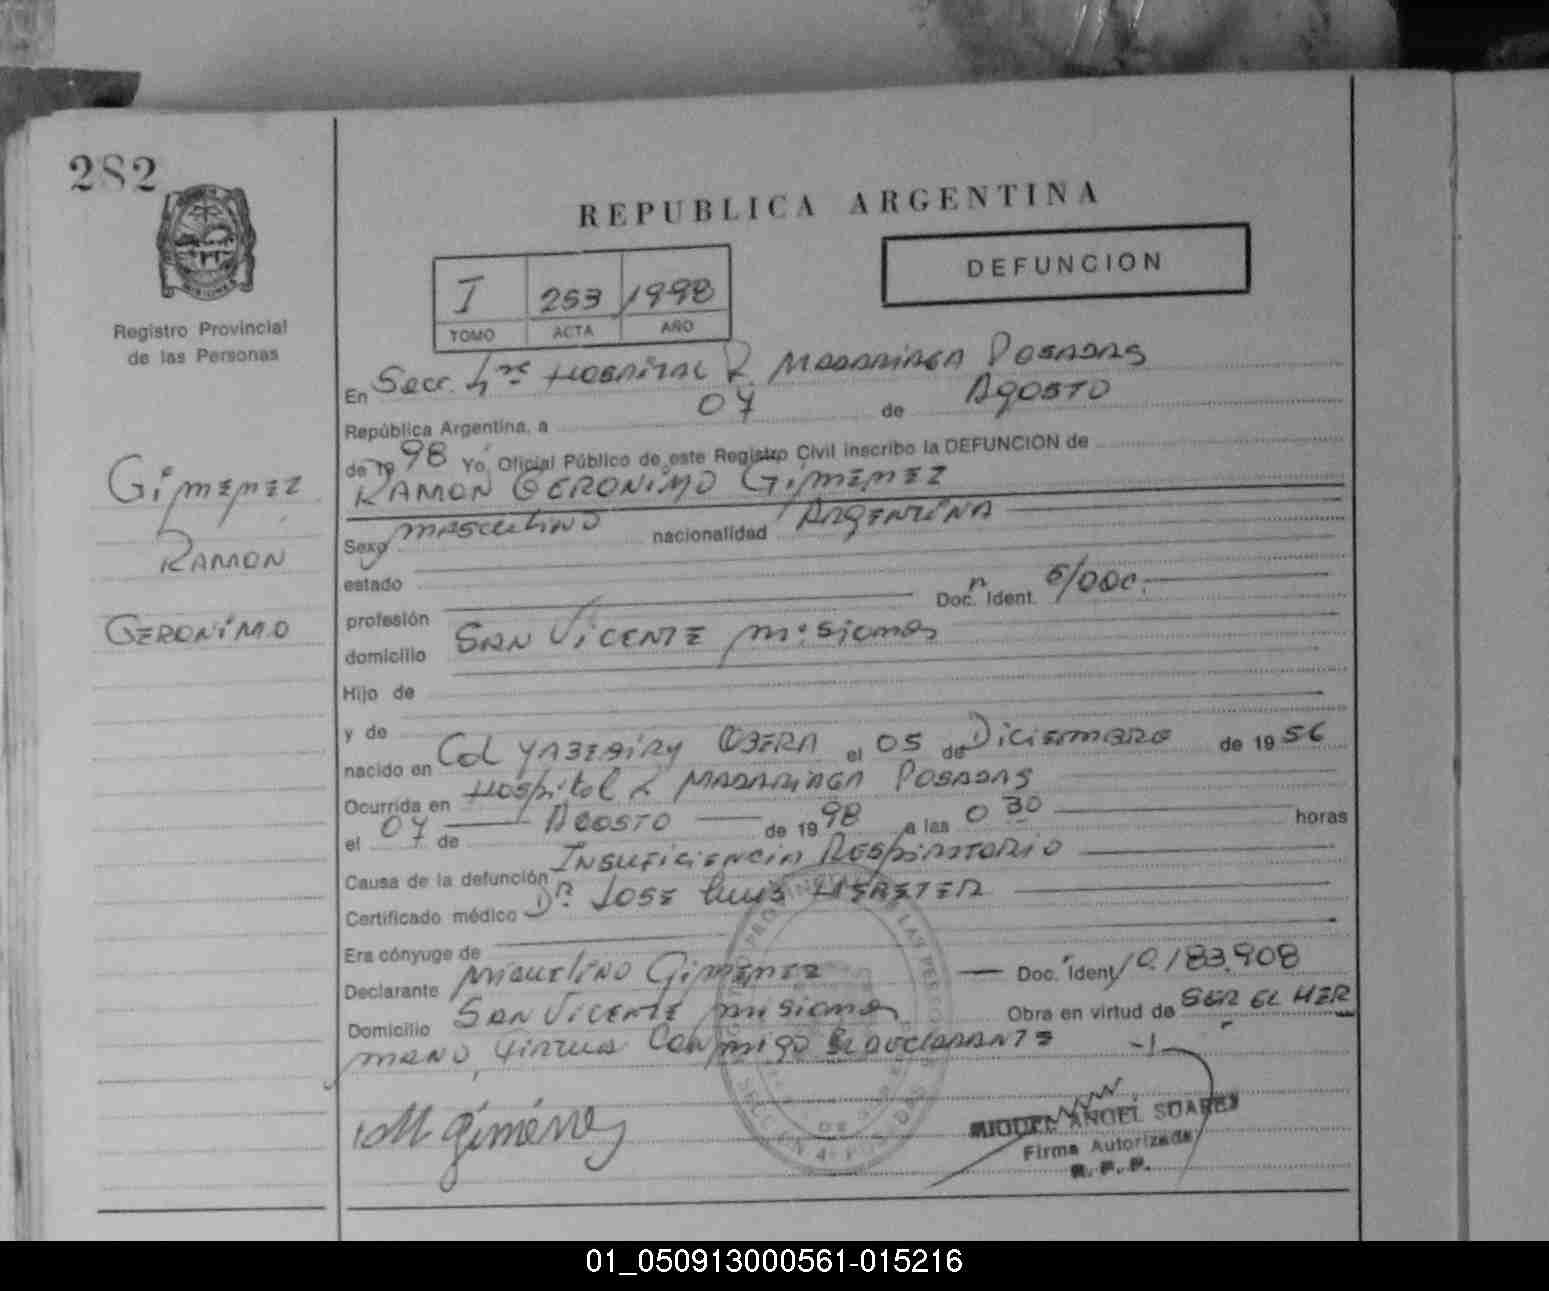 282
REPUBLICA ARGENTINA
DEFUNCION
I 253 1998
TOMO ACTA AÑO
Registro Provincial
de las Personas
En Secc. 4ta HOSPITAL R. MADARIAGA POSADAS
República Argentina, a 07 de AGOSTO
de 19 98 Yo, Oficial Público de este Registro Civil inscribo la DEFUNCION de
RAMON GERONIMO GIMENEZ
Sexo masculino nacionalidad ARGENTINA
estado
profesión Doc. Ident. s/DOC.
domicilio SAN VICENTE misiones
Hijo de
y de
nacido en Col YABEBIRY OBERA el 05 de Diciembre de 19 56
Ocurrida en Hospital R MADARIAGA POSADAS
el 07 de AGOSTO de 19 98 a las 0 30 horas
Causa de la defunción INSUFICIENCIA RESPIRATORIO
Certificado médico Dr. JOSE Luis
Era cónyuge de
Declarante MIGUELINO GIMENEZ Doc. Ident 10.183.908
Domicilio SAN VICENTE misiones Obra en virtud de SER EL HER
MANO, FIRMA CONMIGO EL DECLARANTE
M gimenez
MIGUEL ANGEL SUAREZ
Firma Autorizada
R. P. P.
GIMENEZ
RAMON
GERONIMO
SECCION 4a POSADAS
01_050913000561-015216